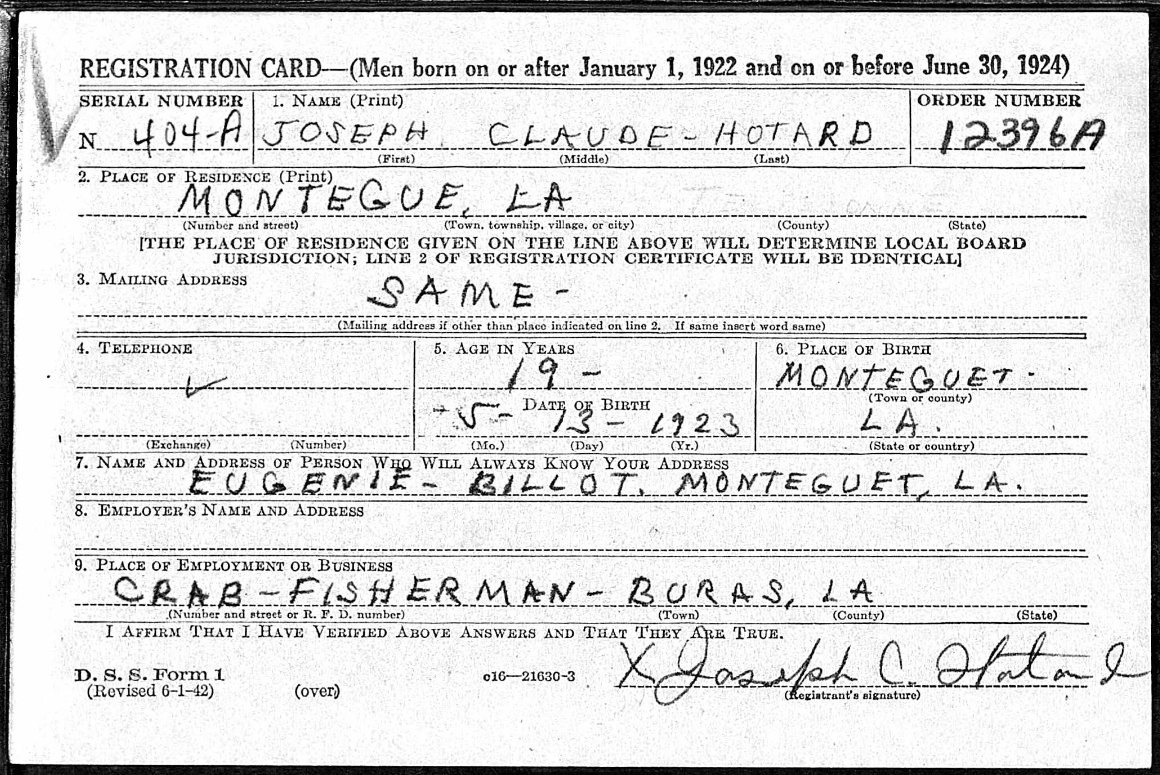 REGISTRATION CARD—(Men born on or after January 1, 1922 and on or before June 30, 1924)
SERIAL NUMBER 1. NAME (Print) ORDER NUMBER
N 404-A JOSEPH CLAUDE - HOTARD 12396A
(First) (Middle) (Last)
2. PLACE OF RESIDENCE (Print)
MONTEGUE, LA
(Number and street) (Town, township, village, or city) (County) (State)
[THE PLACE OF RESIDENCE GIVEN ON THE LINE ABOVE WILL DETERMINE LOCAL BOARD
JURISDICTION; LINE 2 OF REGISTRATION CERTIFICATE WILL BE IDENTICAL]
3. MAILING ADDRESS
SAME -
(Mailing address if other than place indicated on line 2. If same insert word same)
4. TELEPHONE 5. AGE IN YEARS 6. PLACE OF BIRTH
19 - MONTEGUET -
(Town or county)
DATE OF BIRTH
5 - 13 - 1923 LA.
(Exchange) (Number) (Mo.) (Day) (Yr.) (State or country)
7. NAME AND ADDRESS OF PERSON WHO WILL ALWAYS KNOW YOUR ADDRESS
EUGENIE - BILLOT. MONTEGUET, LA.
8. EMPLOYER'S NAME AND ADDRESS
9. PLACE OF EMPLOYMENT OR BUSINESS
CRAB - FISHERMAN - BURAS, LA
(Number and street or R. F. D. number) (Town) (County) (State)
I AFFIRM THAT I HAVE VERIFIED ABOVE ANSWERS AND THAT THEY ARE TRUE.
D. S. S. Form 1 c16—21630-3 X Joseph C. Hotard
(Revised 6-1-42) (over) (Registrant's signature)